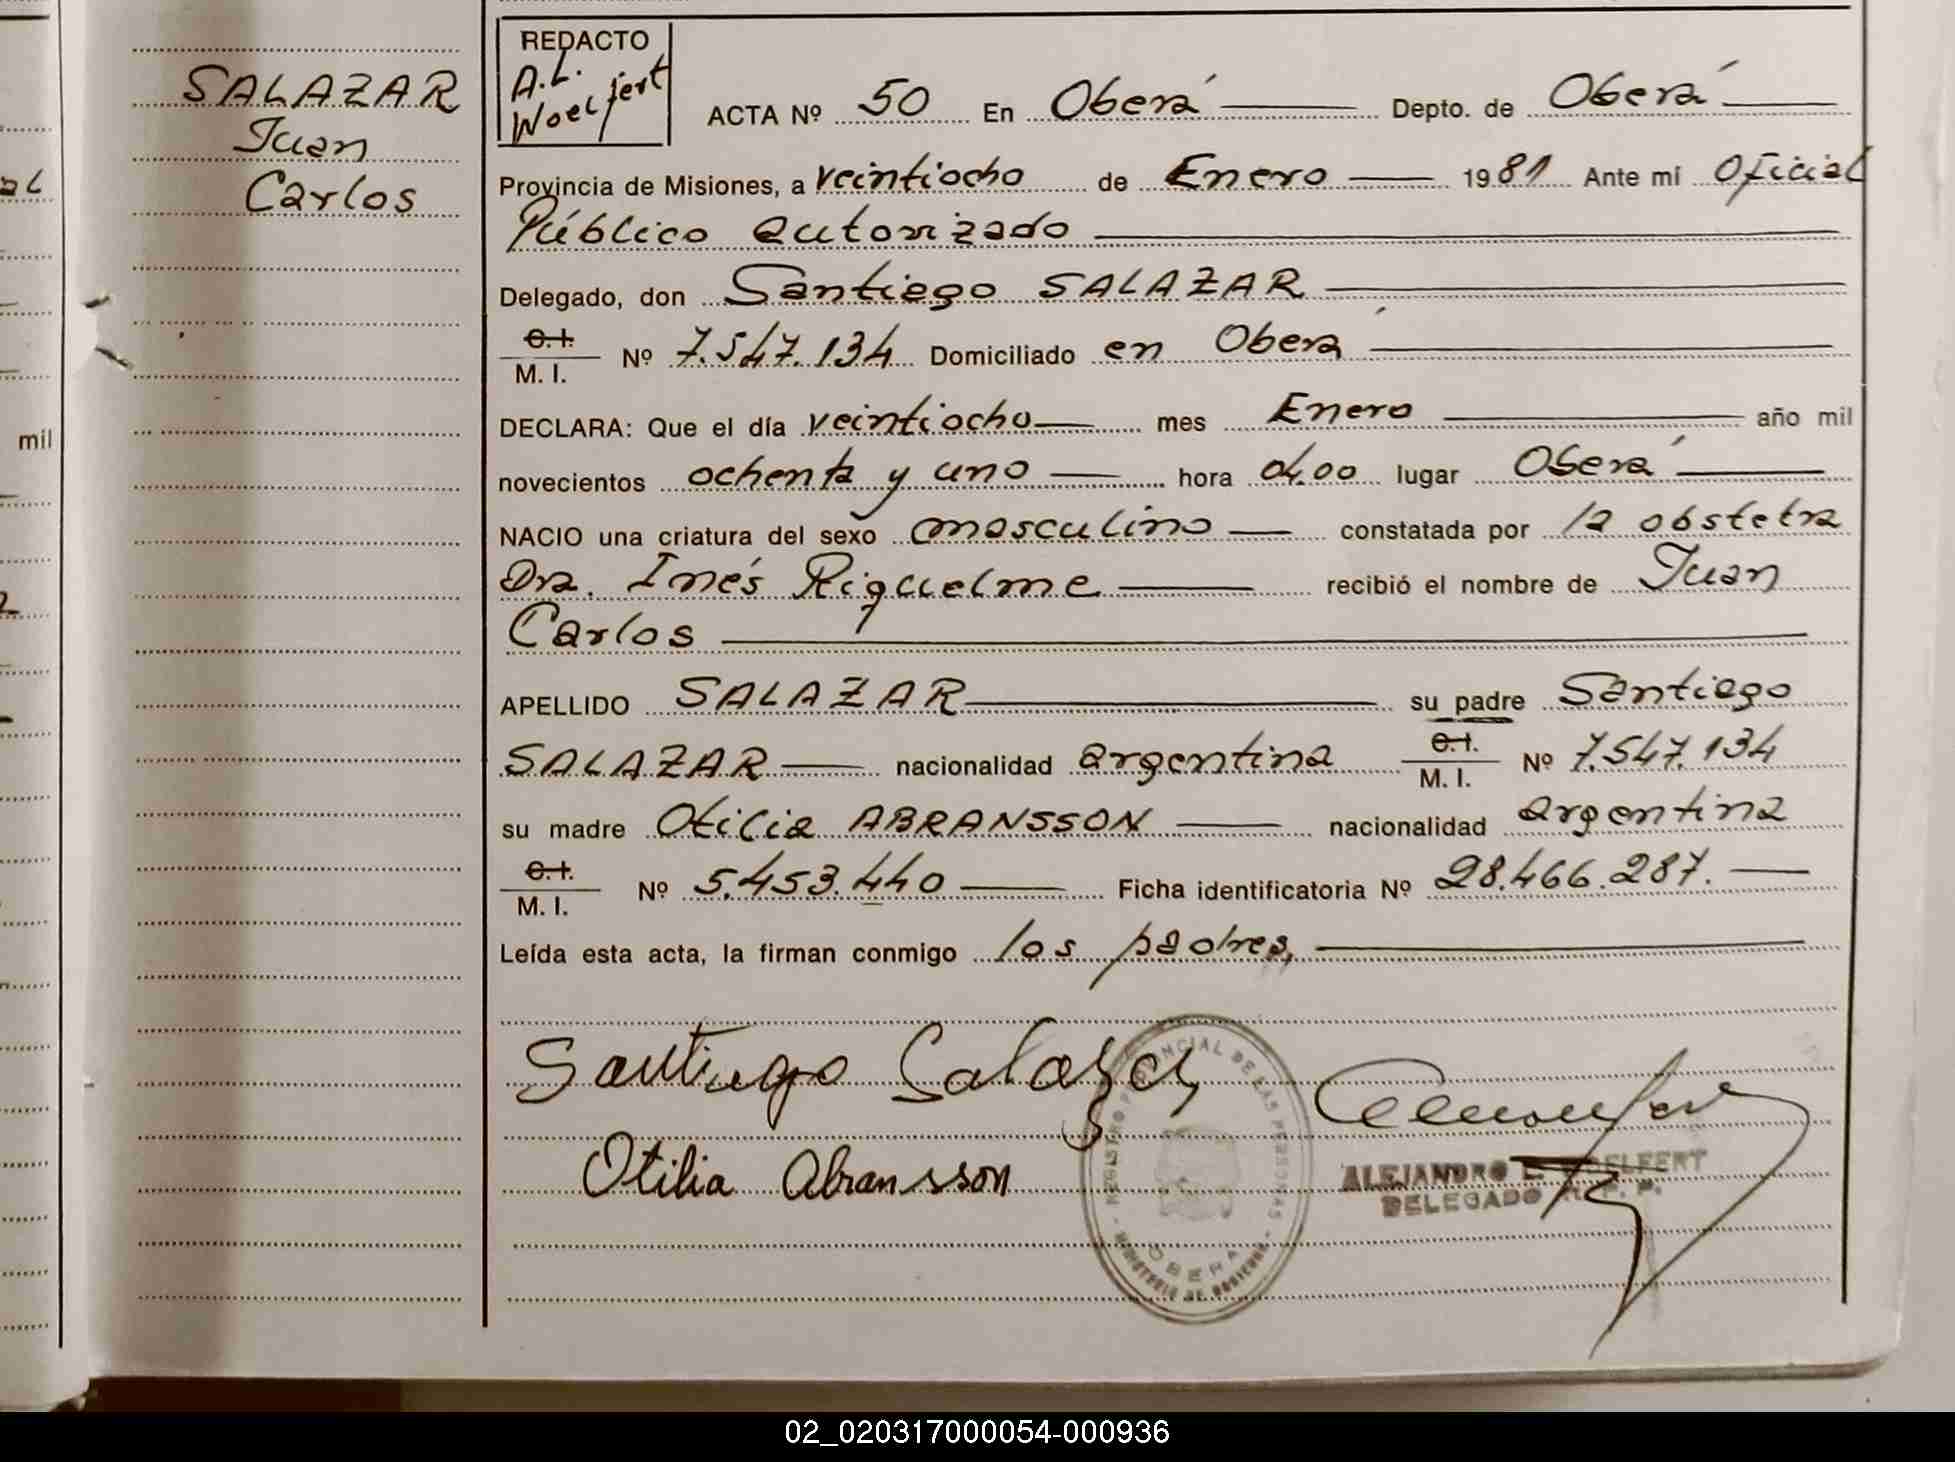 al
mil
SALAZAR
Juan
Carlos
REDACTO
A.L.
Woelfert
ACTA Nº 50 En Oberá Depto. de Oberá
Provincia de Misiones, a veintiocho de Enero 1981 Ante mí Oficial
Público autorizado
Delegado, don Santiago SALAZAR
C.I.
M. I. Nº 7.547.134 Domiciliado en Oberá
DECLARA: Que el día veintiocho mes Enero año mil
novecientos ochenta y uno hora 04.00 lugar Oberá
NACIO una criatura del sexo masculino constatada por la obstetra
Dra. Inés Riquelme recibió el nombre de Juan
Carlos
APELLIDO SALAZAR su padre Santiago
SALAZAR nacionalidad argentina C.I. M. I. Nº 7.547.134
su madre Otilia ABRANSSON nacionalidad argentina
C.I.
M. I. Nº 5.453.440 Ficha identificatoria Nº 28.466.287.
Leída esta acta, la firman conmigo los padres,
Santiago Salazar
Otilia Abransson
REGISTRO PROVINCIAL DE LAS PERSONAS
OBERA
MINISTERIO DE GOBIERNO
ALEJANDRO L. WOELFERT
DELEGADO R. P. P.
02_020317000054-000936